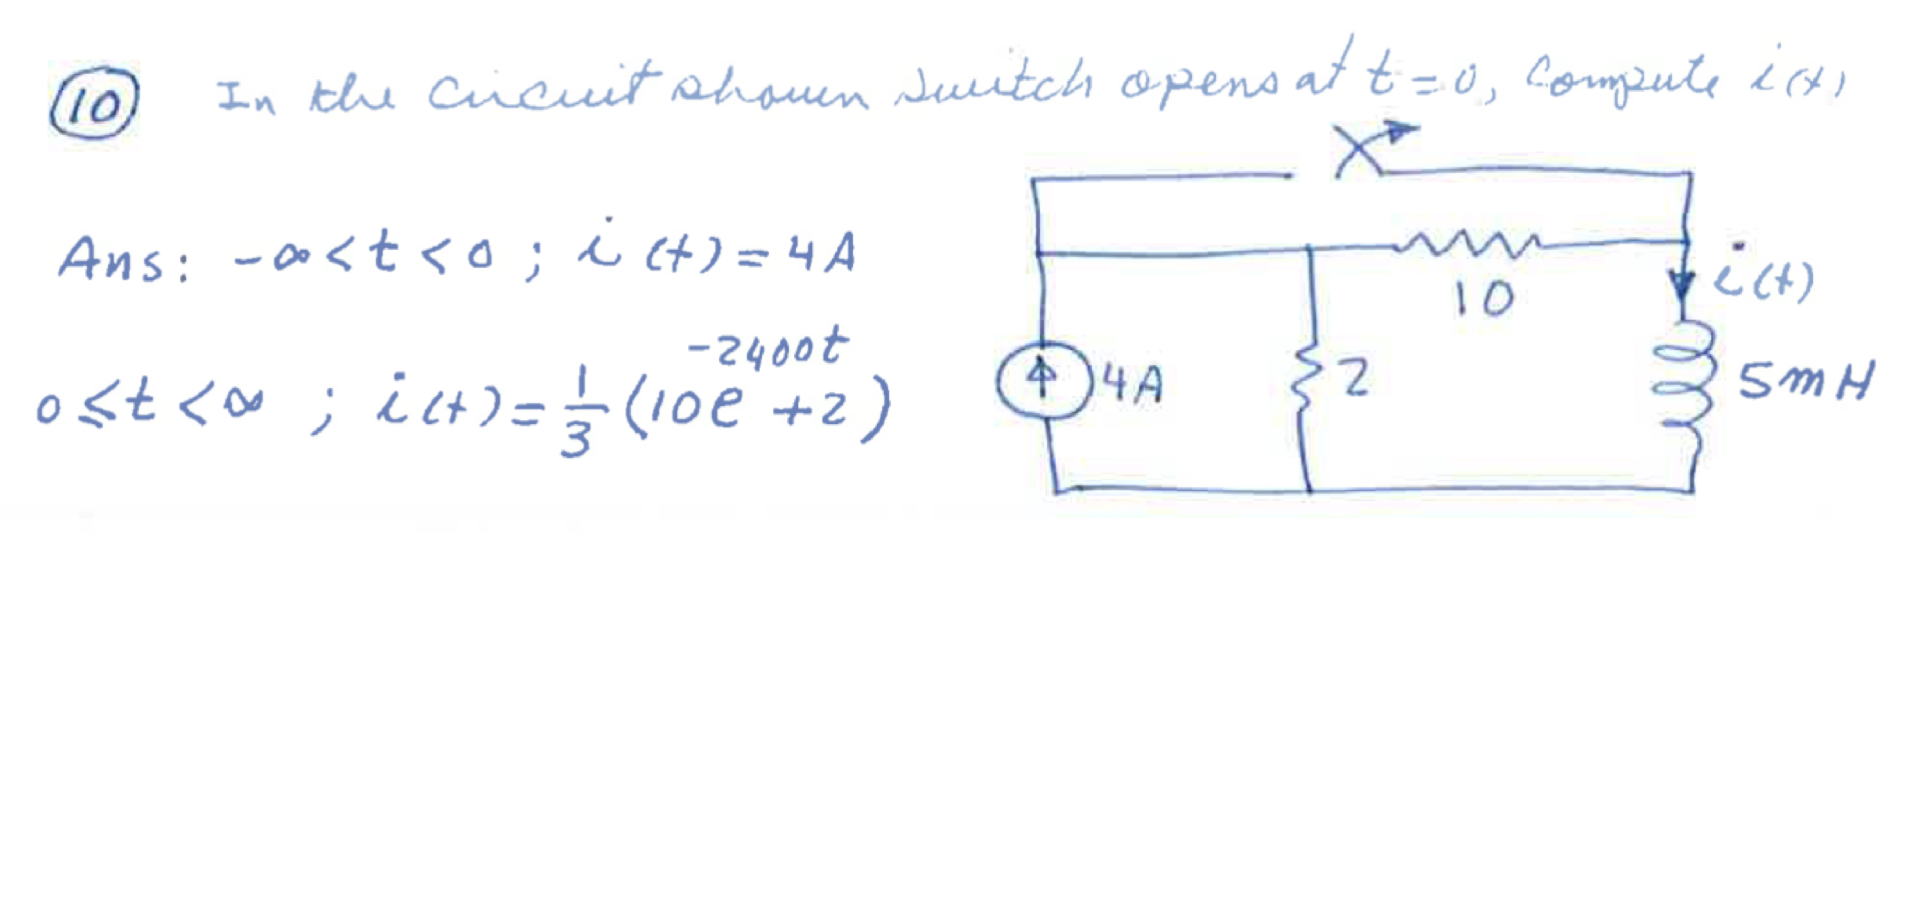 10 In the circuit shown switch opens at t=0, Compute i(t)
Ans: -∞<t<0; i(t)=4A
0≤t<∞; i(t)=1/3(10e^-2400t+2)
10
i(t)
4A
2
5mH